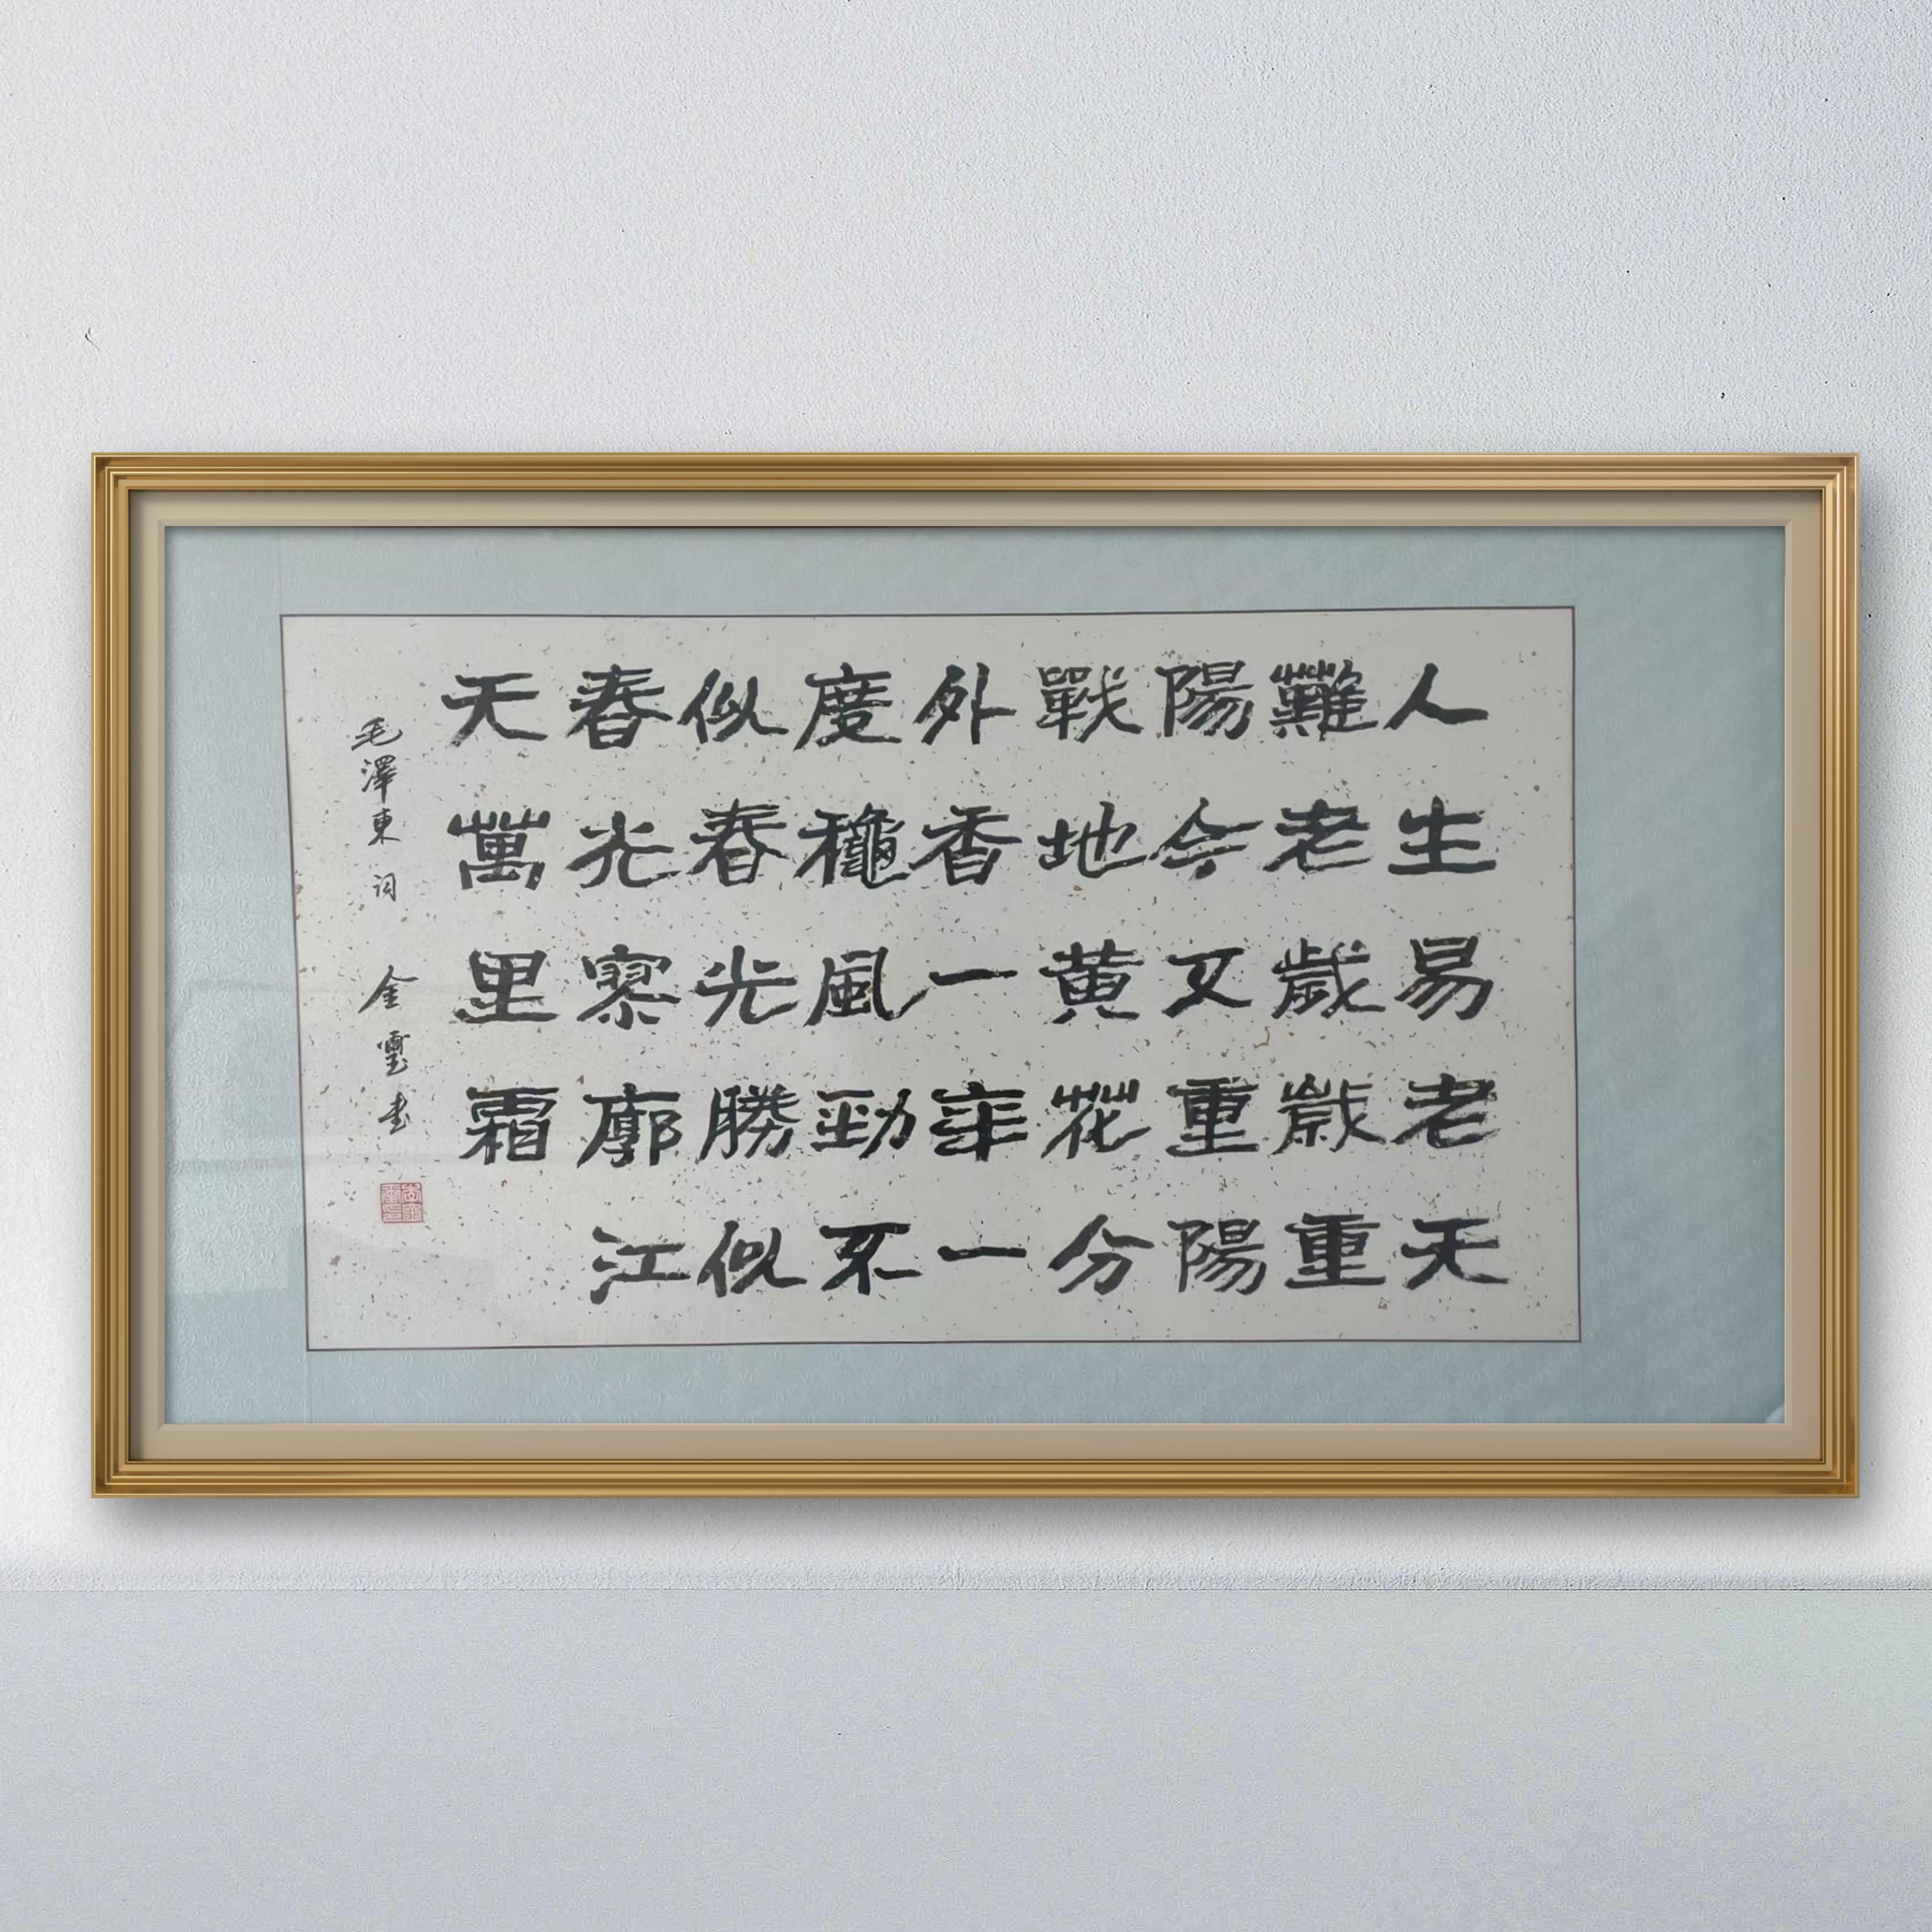 人生易老天
難老歲歲重
陽今又重陽
戰地黄花分
外香一年一
度龝風勁不
似春光勝似
春光寥廓江
天萬里霜
毛澤東词 金雲书